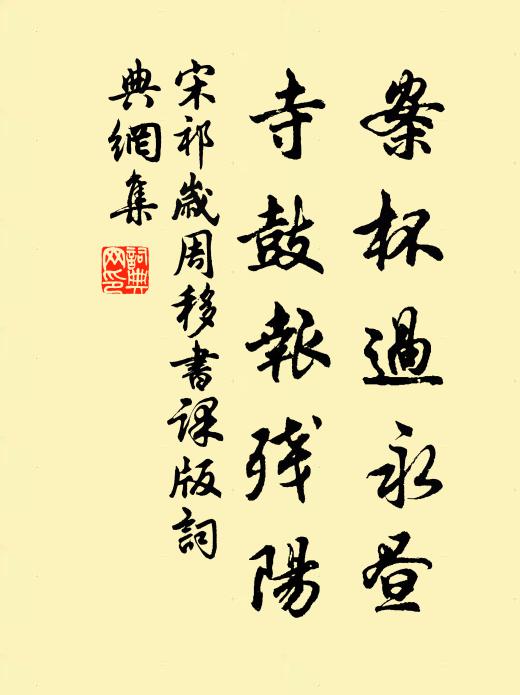 案杯過永晝
寺鼓報残陽
宋祁歲周移書課版詞
典網集
詞典
网印